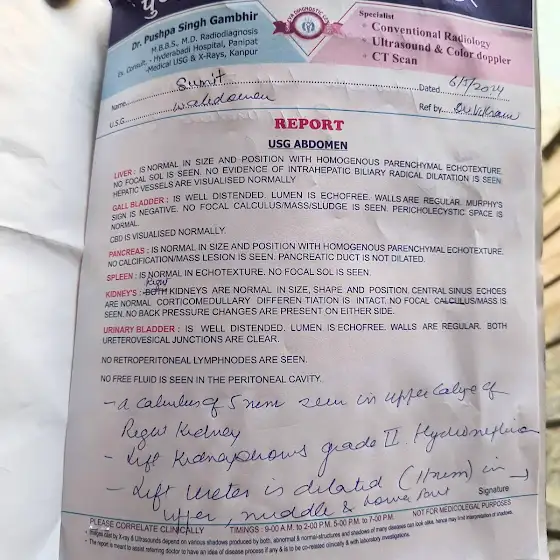 Dr. Pushpa Singh Gambhir
M.B.B.S., M.D. Radiodiagnosis
Ex. Consult. - Hyderabadi Hospital, Panipat
-Medical USG & X-Rays, Kanpur
Specialist
• Conventional Radiology
• Ultrasound & Color doppler
• CT Scan
Name Sumit Dated 6/5/2024
U.S.G. w. abdomen Ref by Dr. Vikram
REPORT
USG ABDOMEN
LIVER : IS NORMAL IN SIZE AND POSITION WITH HOMOGENOUS PARENCHYMAL ECHOTEXTURE.
NO FOCAL SOL IS SEEN. NO EVIDENCE OF INTRAHEPATIC BILIARY RADICAL DILATATION IS SEEN
HEPATIC VESSELS ARE VISUALISED NORMALLY
GALL BLADDER : IS WELL DISTENDED. LUMEN IS ECHOFREE. WALLS ARE REGULAR. MURPHY'S
SIGN IS NEGATIVE. NO FOCAL CALCULUS/MASS/SLUDGE IS SEEN. PERICHOLECYSTIC SPACE IS
NORMAL.
CBD IS VISUALISED NORMALLY.
PANCREAS : IS NORMAL IN SIZE AND POSITION WITH HOMOGENOUS PARENCHYMAL ECHOTEXTURE.
NO CALCIFICATION/MASS LESION IS SEEN. PANCREATIC DUCT IS NOT DILATED.
SPLEEN : IS NORMAL IN ECHOTEXTURE. NO FOCAL SOL IS SEEN.
Right
KIDNEY'S : BOTH KIDNEYS ARE NORMAL IN SIZE, SHAPE AND POSITION. CENTRAL SINUS ECHOES
ARE NORMAL CORTICOMEDULLARY DIFFEREN TIATION IS INTACT. NO FOCAL CALCULUS/MASS IS
SEEN. NO BACK PRESSURE CHANGES ARE PRESENT ON EITHER SIDE.
URINARY BLADDER : IS WELL DISTENDED. LUMEN IS ECHOFREE. WALLS ARE REGULAR. BOTH
URETEROVESICAL JUNCTIONS ARE CLEAR.
NO RETROPERITONEAL LYMPHNODES ARE SEEN.
NO FREE FLUID IS SEEN IN THE PERITONEAL CAVITY.
- a calculus of 5 mm seen in upper calyx of
Right Kidney
- Left Kidney shows grade II Hydronephrosis
- Left ureter is dilated (11mm) in
upper middle & lower part
Signature
PLEASE CORRELATE CLINICALLY TIMINGS : 9-00 A.M. to 2-00 P.M. 5-00 P.M. to 7-00 P.M. NOT FOR MEDICOLEGAL PURPOSES
• Images cast by X-ray & Ultrasounds depend on various shadows produced by both, abnormal & normal-structures and shadows of many diseases can look alike, hence may limit interpretation of shadows.
• The report is meant to assist referring doctor to have an idea of disease process if any & is to be co-related clinically & with laboratory investigations.